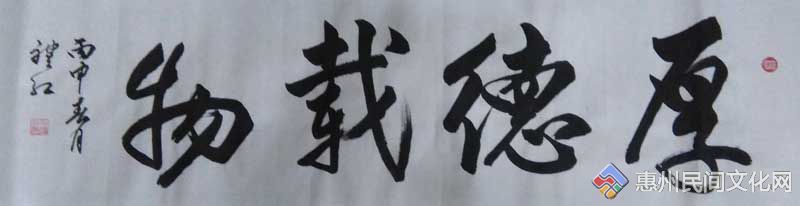 厚德载物
丙申春月
礼红
惠州民间文化网